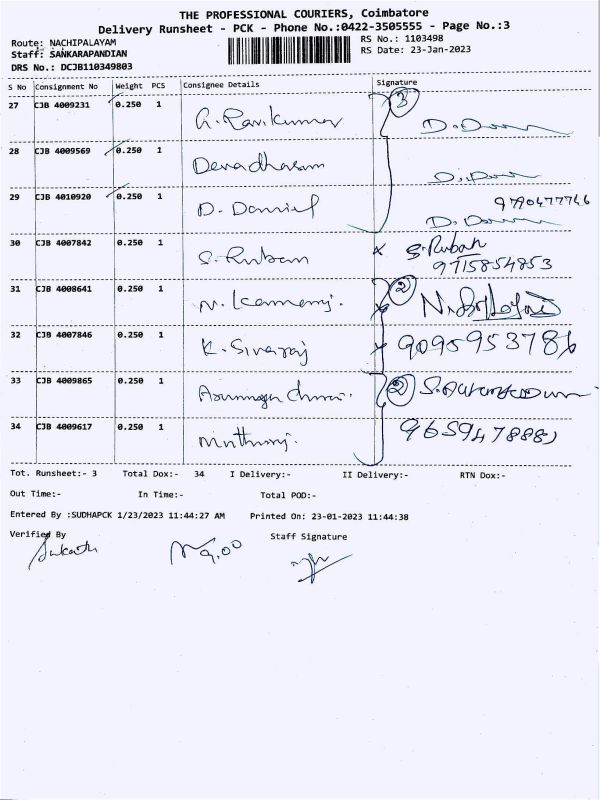 THE PROFESSIONAL COURIERS, Coimbatore
Delivery Runsheet - PCK - Phone No.:0422-3505555 - Page No.:3
Route: NACHIPALAYAM RS No.: 1103498
Staff: SANKARAPANDIAN RS Date: 23-Jan-2023
DRS No.: DCJB110349803
S No Consignment No Weight PCS Consignee Details Signature
27 CJB 4009231 0.250 1 G. Ravikumar 3
28 CJB 4009569 0.250 1 Devadhasam
29 CJB 4010920 0.250 1 D. Daniel 9790477746
30 CJB 4007842 0.250 1 S. Ruban S. Ruban
9715854853
31 CJB 4008641 0.250 1 2
32 CJB 4007846 0.250 1 K. Sivaraj 9095953786
33 CJB 4009865 0.250 1 2
34 CJB 4009617 0.250 1
Tot. Runsheet:- 3 Total Dox:- 34 I Delivery:- II Delivery:- RTN Dox:-
Out Time:- In Time:- Total POD:-
Entered By :SUDHAPCK 1/23/2023 11:44:27 AM Printed On: 23-01-2023 11:44:38
Verified By Staff Signature
9.00